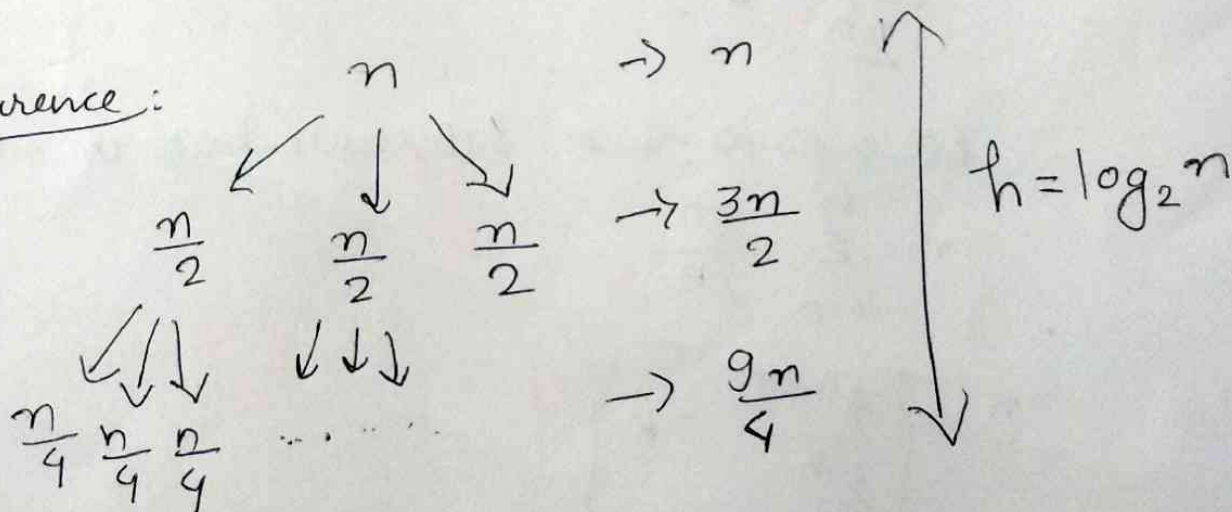 urence :
n → n
n/2 n/2 n/2 → 3n/2
h = log₂ n
n/4 n/4 n/4 ....... → 9n/4